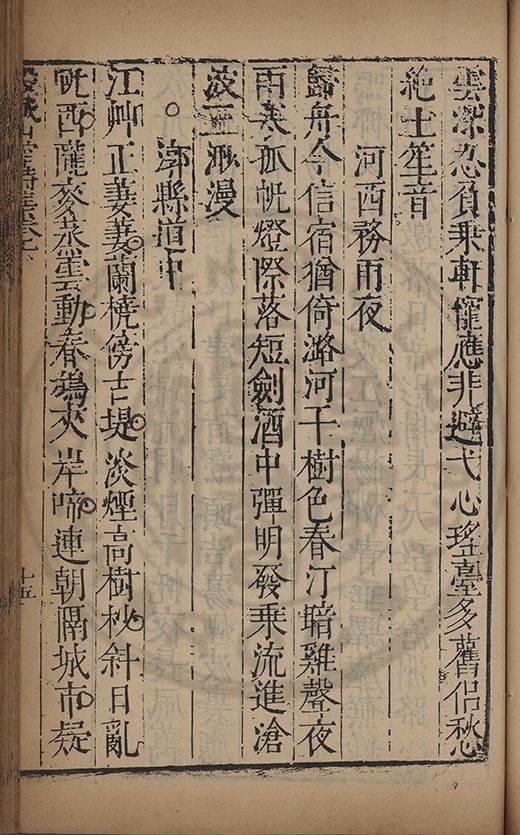 雲深忍負乘軒寵應非避弋心瑤臺多舊侶愁
絶士笙音
河西務雨夜
歸舟今信宿猶倚潞河干樹色春汀暗雞聲夜
雨寒孤帆燈際落短劍酒中彈明發乘流進滄
波正淼漫
漷縣道中
江艸正萋萋蘭橈傍古堤淡煙高樹杪斜日亂
帆西隴麥蒸雲動春鵶夾岸啼連朝隔城市疑
十五